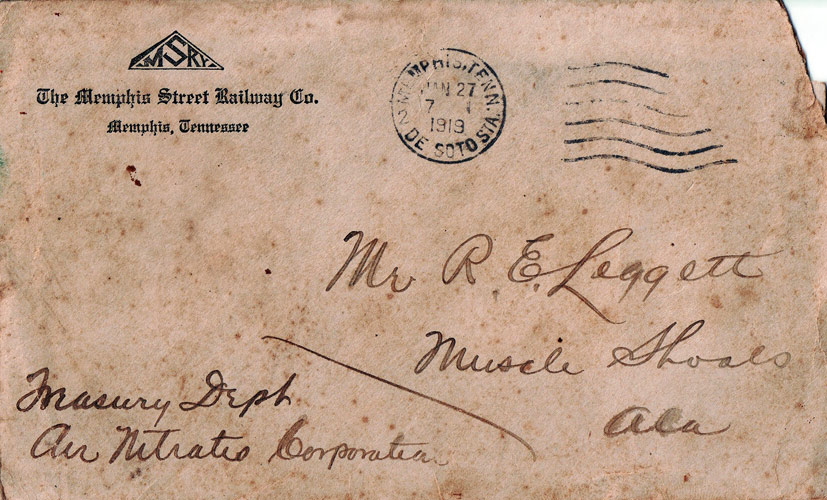 MSRY.
The Memphis Street Railway Co.
Memphis, Tennessee
MEMPHIS, TENN.
JAN 27
7
1919
2 DE SOTO STA.
Mr R. E. Leggett
Muscle Shoals
Ala
Treasury Dept
Air Nitrates Corporation